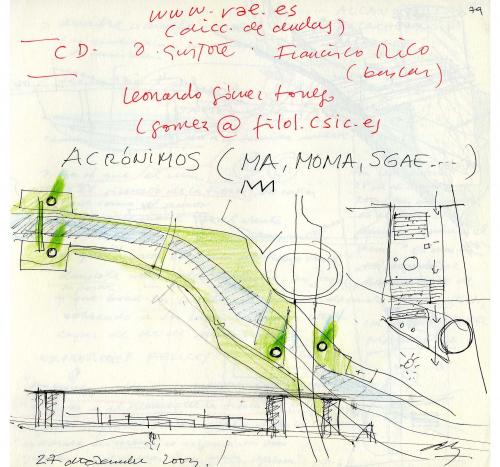 79
www.rae.es
(dicc. de dudas)
CD. Q. Francisco Rico
(buscar)
Leonardo Gómez Torrego
lgomez@filol.csic.es
ACRÓNIMOS (MA, MOMA, SGAE....)
27 2003.